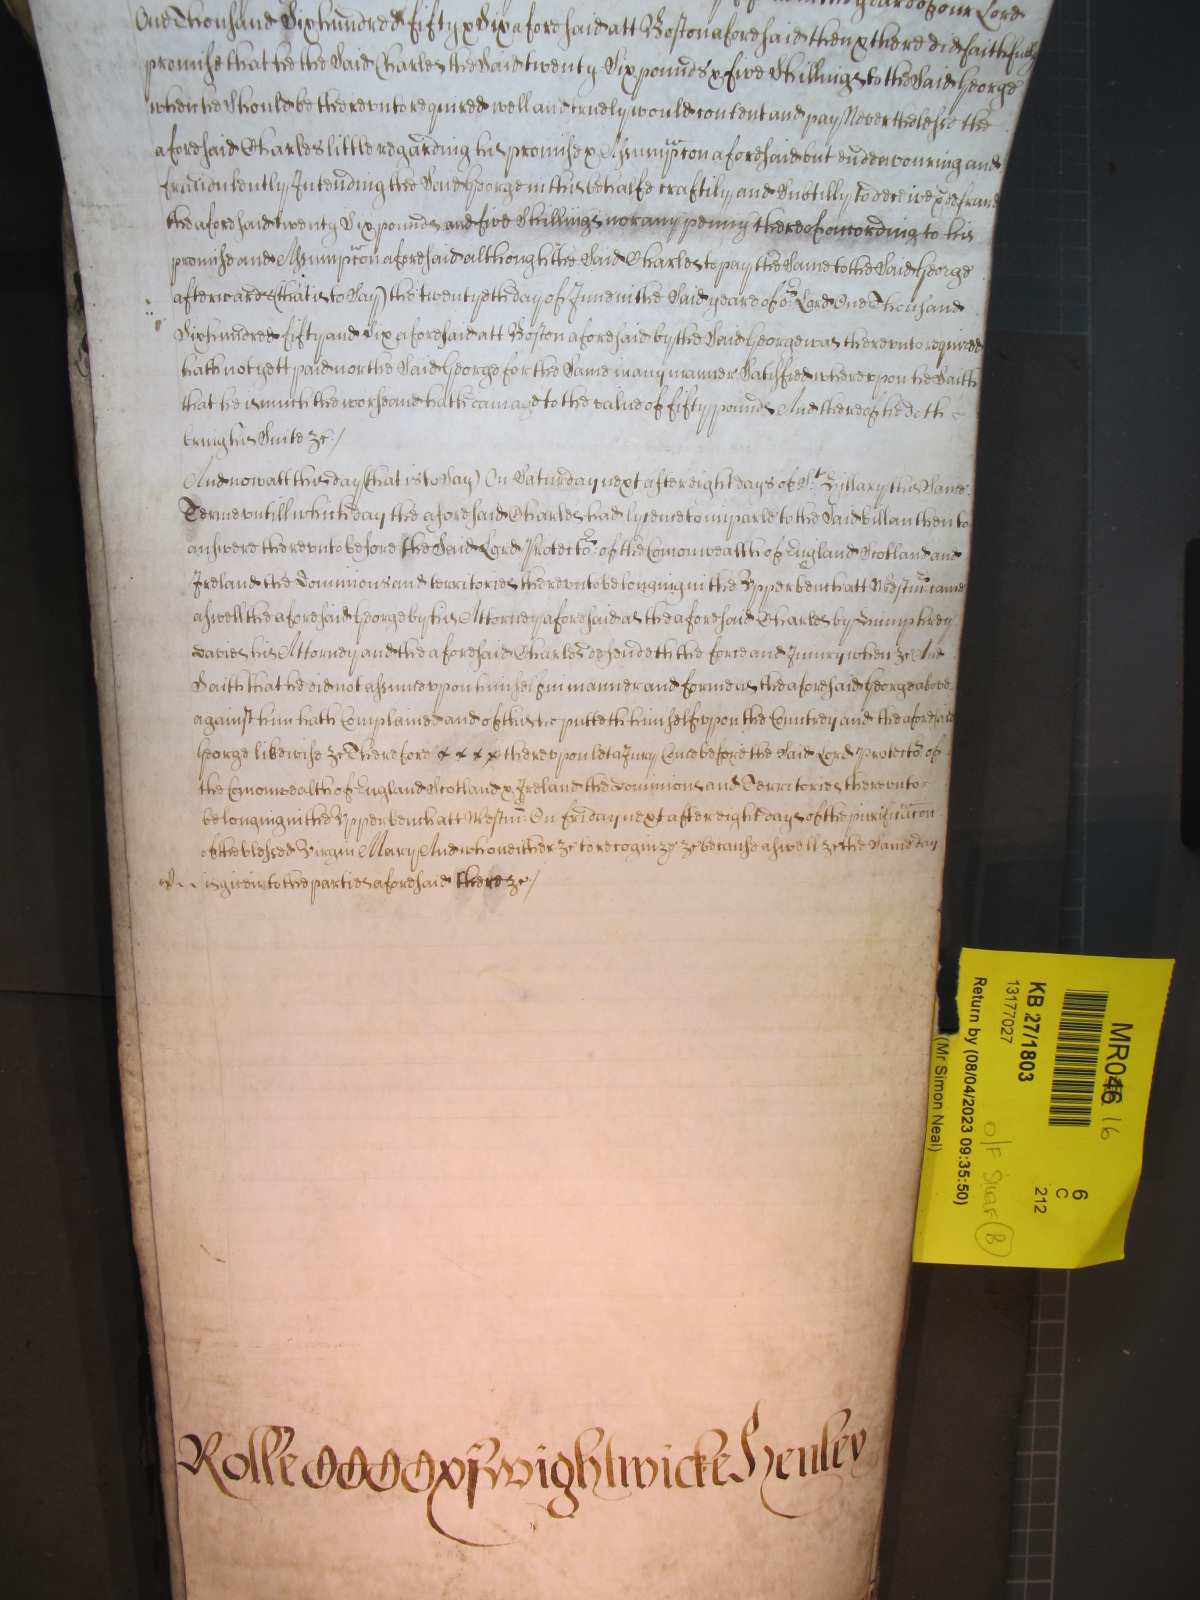 yeare of our Lord
One Thousand Six hundred fifty & Six aforesaid att Boston aforesaid then & there did faithfully
promise that he the Said Charles the Said twenty Six pounds & five Shillings to the Said George
when he Should be therevnto required well and truely would content and pay Neverthelesse the
aforesaid Charles little regarding his promise & Assumpcon aforesaid but endeavouring and
fraudulently Intending the Said George in this behalfe craftily and Subtilly to deceive & defraud
the aforesaid twenty Six pounds and five Shillings nor any penny thereof according to his
promise and Assumpcon aforesaid although the Said Charles to pay the Same to the Said George
afterwards (that is to Say) the twentyeth day of June in the Said yeare of or Lord One Thousand
Six hundred fifty and Six aforesaid att Boston aforesaid by the Said George was therevnto required
hath not yett paid nor the Said George for the Same in any manner Satisfied wherevpon he Saith
that he is much the worse and hath damage to the value of fifty pounds And thereof he doth
bring his Suite &c /
And now att this day (that is to Say) On Saturday next after eight days of St Hillary this Same
Terme vntill which day the aforesaid Charles had lycence to imparle to the Said bill and then to
answere therevnto before the Said Lord Protector of the Comonwealth of England Scotland and
Ireland the Dominions and territories therevnto belonging in the Vpper bench att Westmr came
aswell the aforesaid George by his Attorney aforesaid as the aforesaid Charles by Humphrey
Davies his Attorney and the aforesaid Charles defendeth the force and Iniury when &c And
Saith that he did not assume vpon himself in manner and forme as the aforesaid George above
against him hath Complained and of this he putteth himself vpon the Countrey and the aforesaid
George likewise &c Therefore x x x x therevpon let a Jury Come before the Said Lord Protector of
the Comonwealth of England Scotland & Ireland the Dominions and Territories therevnto
belonging in the Vpper bench att Westmr On friday next after eight days of the purificacon
of the blessed Virgin Mary And who neither &c to recognize &c because aswell &c the Same day
is given to the parties aforesaid there &c /
Rolle Wightwicke Henley
MR046 16
KB 27/1803
13177027
Return by (08/04/2023 09:35:50)
(Mr Simon Neal)
6
C
212
O/F
B